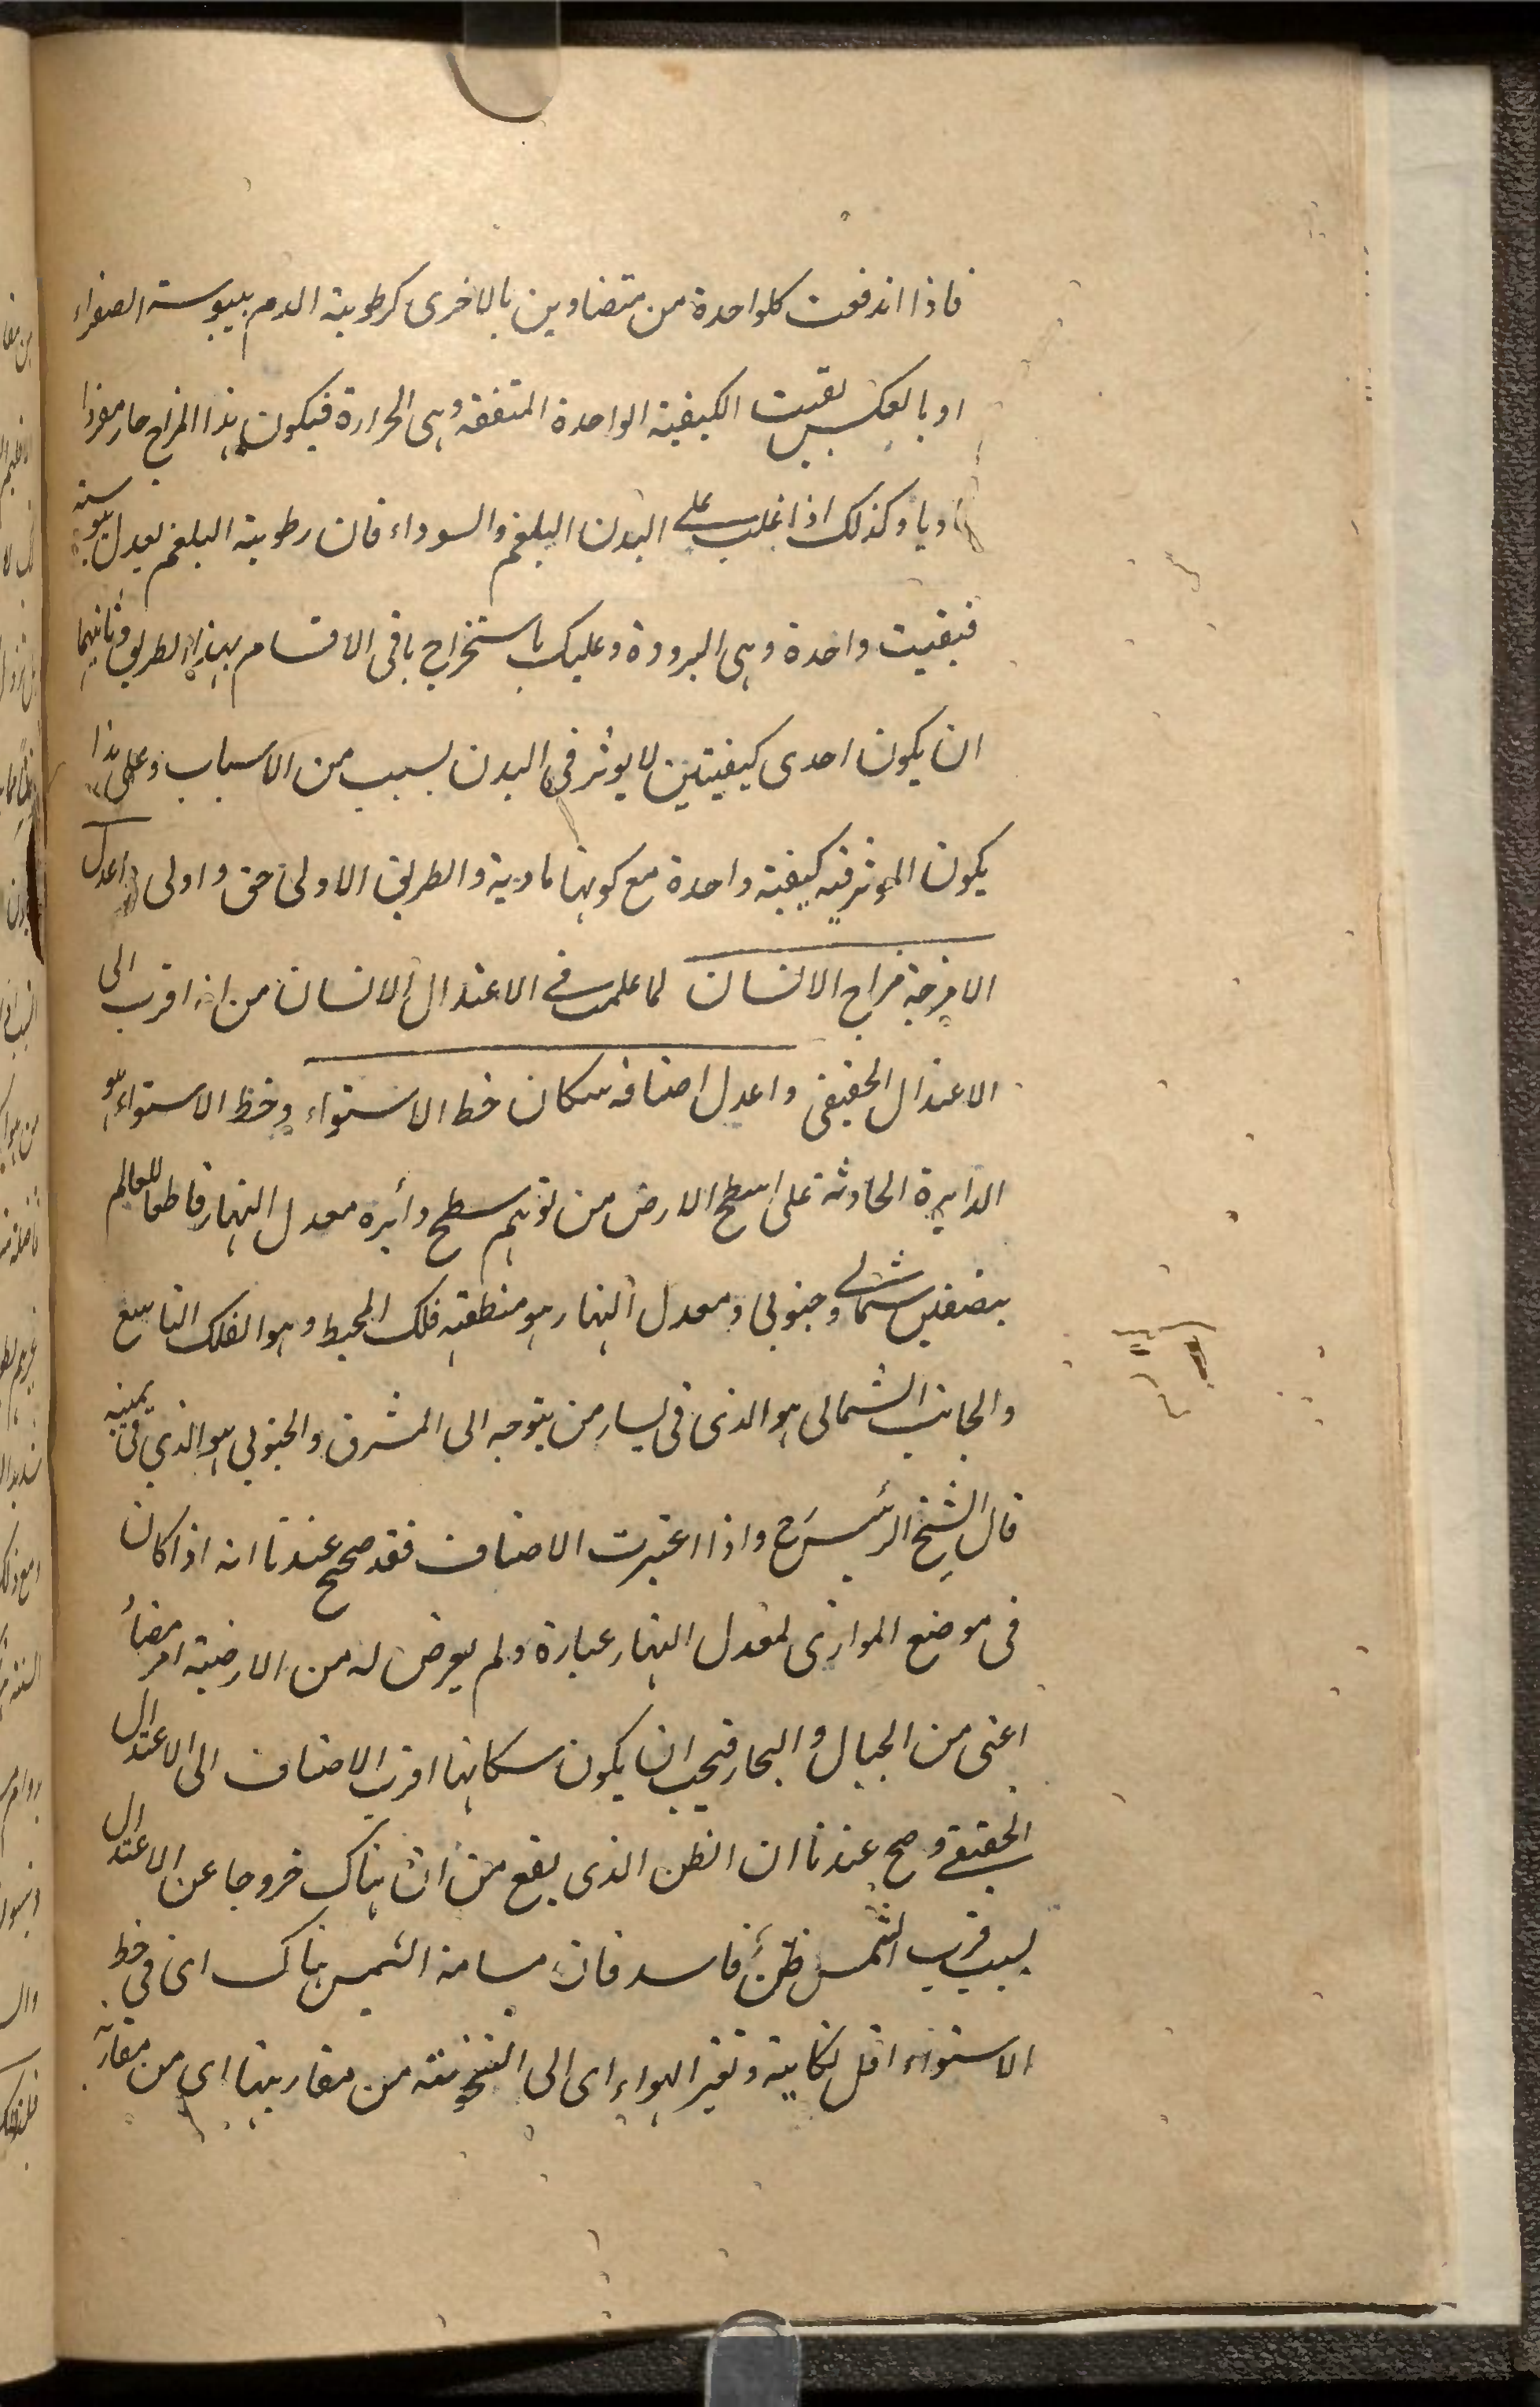 فاذا اندفعت كلواحدة من متضادين بالاخرى كرطوبة الدم بيبوسة الصفراء
او بالعكس بقيت الكيفية الواحدة المتفقة وهى الحرارة فيكون هذا المزاج حار مفردا
ماديا وكذلك اذا غلب على البدن البلغم والسوداء فان رطوبة البلغم يعدل يبوسته
فبقيت واحدة وهى البرودة وعليك باستخراج باقى الاقسام بهذا الطريق وثانيهما
ان يكون احدى كيفيتين لا يوثر فى البدن بسبب من الاسباب وعلى هذا
يكون الموثر فيه كيفية واحدة مع كونها مادية والطريق الاولى حق واولى واعدل
الامزجة مزاج الانسان لما علمت فى الاعتدال الانسان من انه اقرب الى
الاعتدال الحقيقى واعدل اصنافه سكان خط الاستواء وخط الاستواء هو
الدايرة الحادثة على سطح الارض من توهم سطح دائره معدل النهار قاطعا للعالم
بنصفين شمالى وجنوبى ومعدل النهار هو منطقة فلك المحيط وهو الفلك التاسع
والجانب الشمالى هو الذى فى يسار من يتوجه الى المشرق والجنوبى هو الذى فى يمينه
قال الشيخ الرئيس رح واذا اعتبرت الاصناف فقد صح عندنا انه اذا كان
فى موضع الموازى لمعدل النهار عبارة ولم يعرض له من الارضية امر مضاد
اعنى من الجبال والبحار فيجب ان يكون سكانها اقرب الاصناف الى الاعتدال
الحقيقى وصح عندنا ان الظن الذى يقع من ان هناك خروجا عن الاعتدال
بسبب قرب الشمس ظن فاسد فان مسامتة الشمس هناك اى فى خط
الاستواء اقل نكاية وتغير الهواء اى الى السخونة من مقاربتها اى من مقاربة